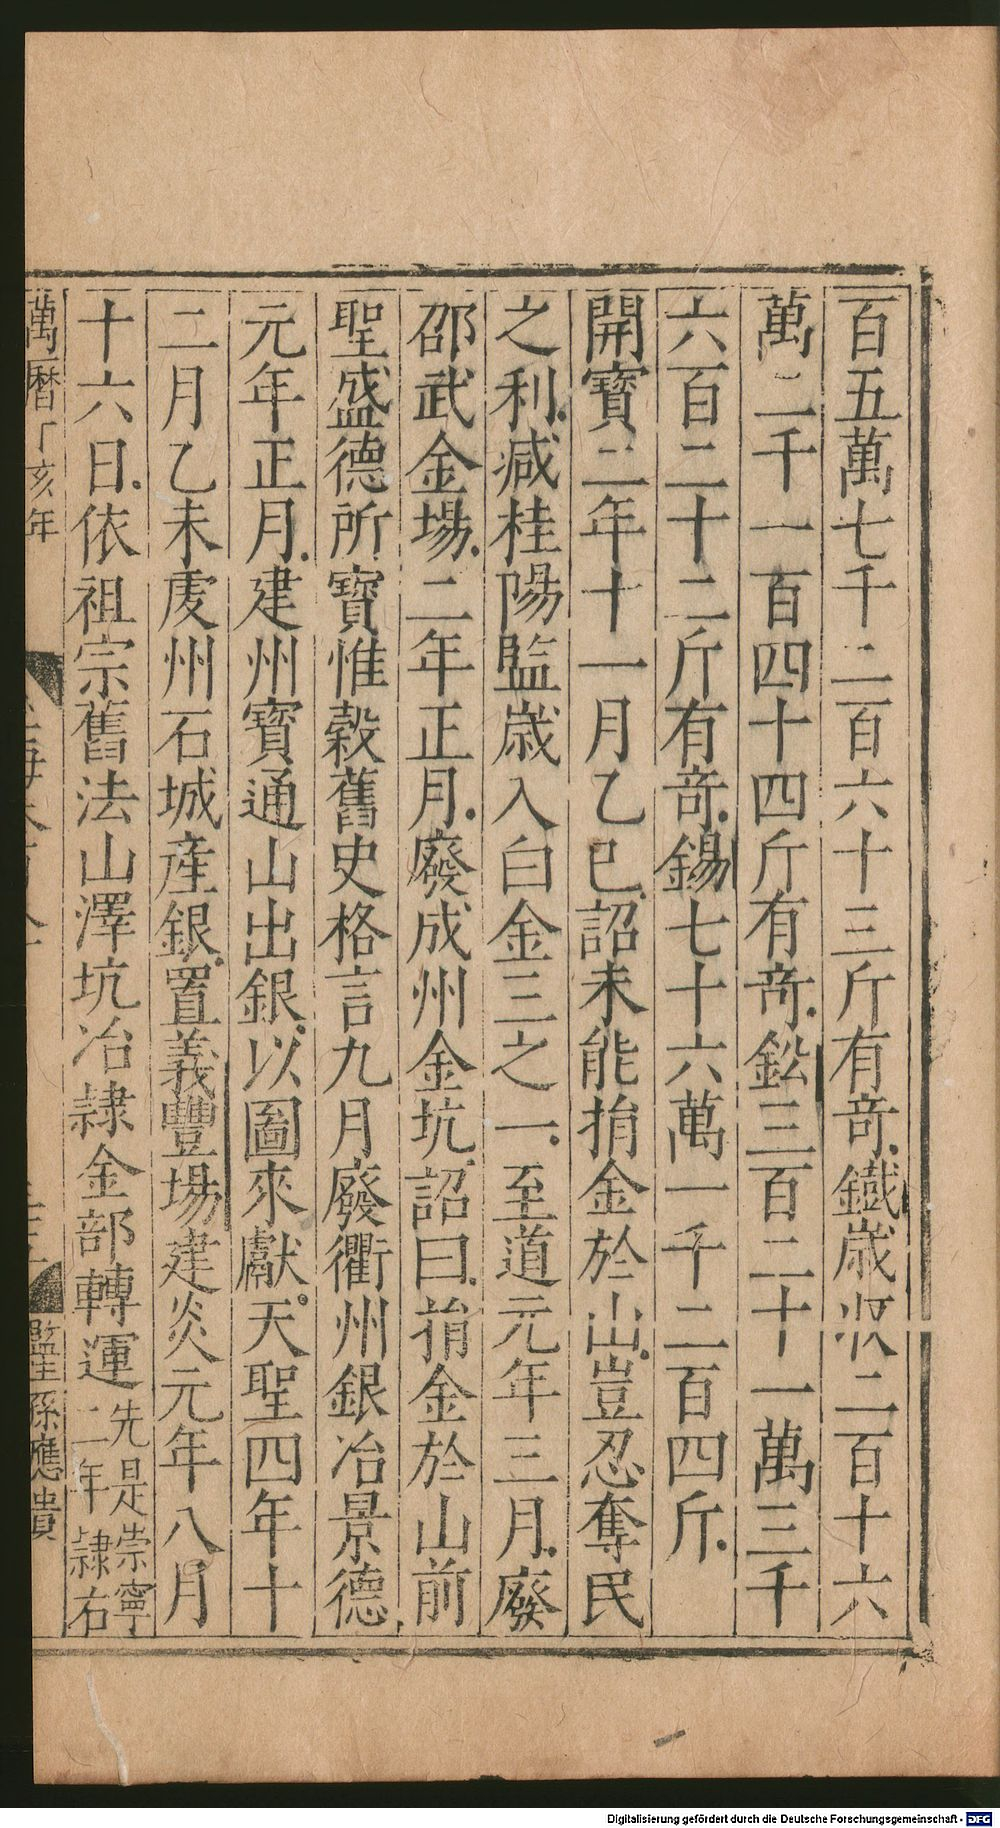 百五萬七千二百六十三斤有竒鐵歳收二百十六
萬二千一百四十四斤有竒鈆三百二十一萬三千
六百二十二斤有竒錫七十六萬一千二百四斤
開寶二年十一月乙巳詔未能捐金於山豈忍奪民
之利减桂陽監歳入白金三之一至道元年三月廢
邵武金場二年正月廢成州金坑詔曰捐金於山前
聖盛德所寶惟穀舊史格言九月廢衢州銀冶景德
元年正月建州寶通山出銀以圖來獻天聖四年十
二月乙未䖍州石城産銀置義豐場建炎元年八月
十六日依祖宗舊法山澤坑冶隷金部轉運先是崇寧
二年隷右
萬曆丁亥年
監生孫應
Digitalisierung gefördert durch die Deutsche Forschungsgemeinschaft - DFG